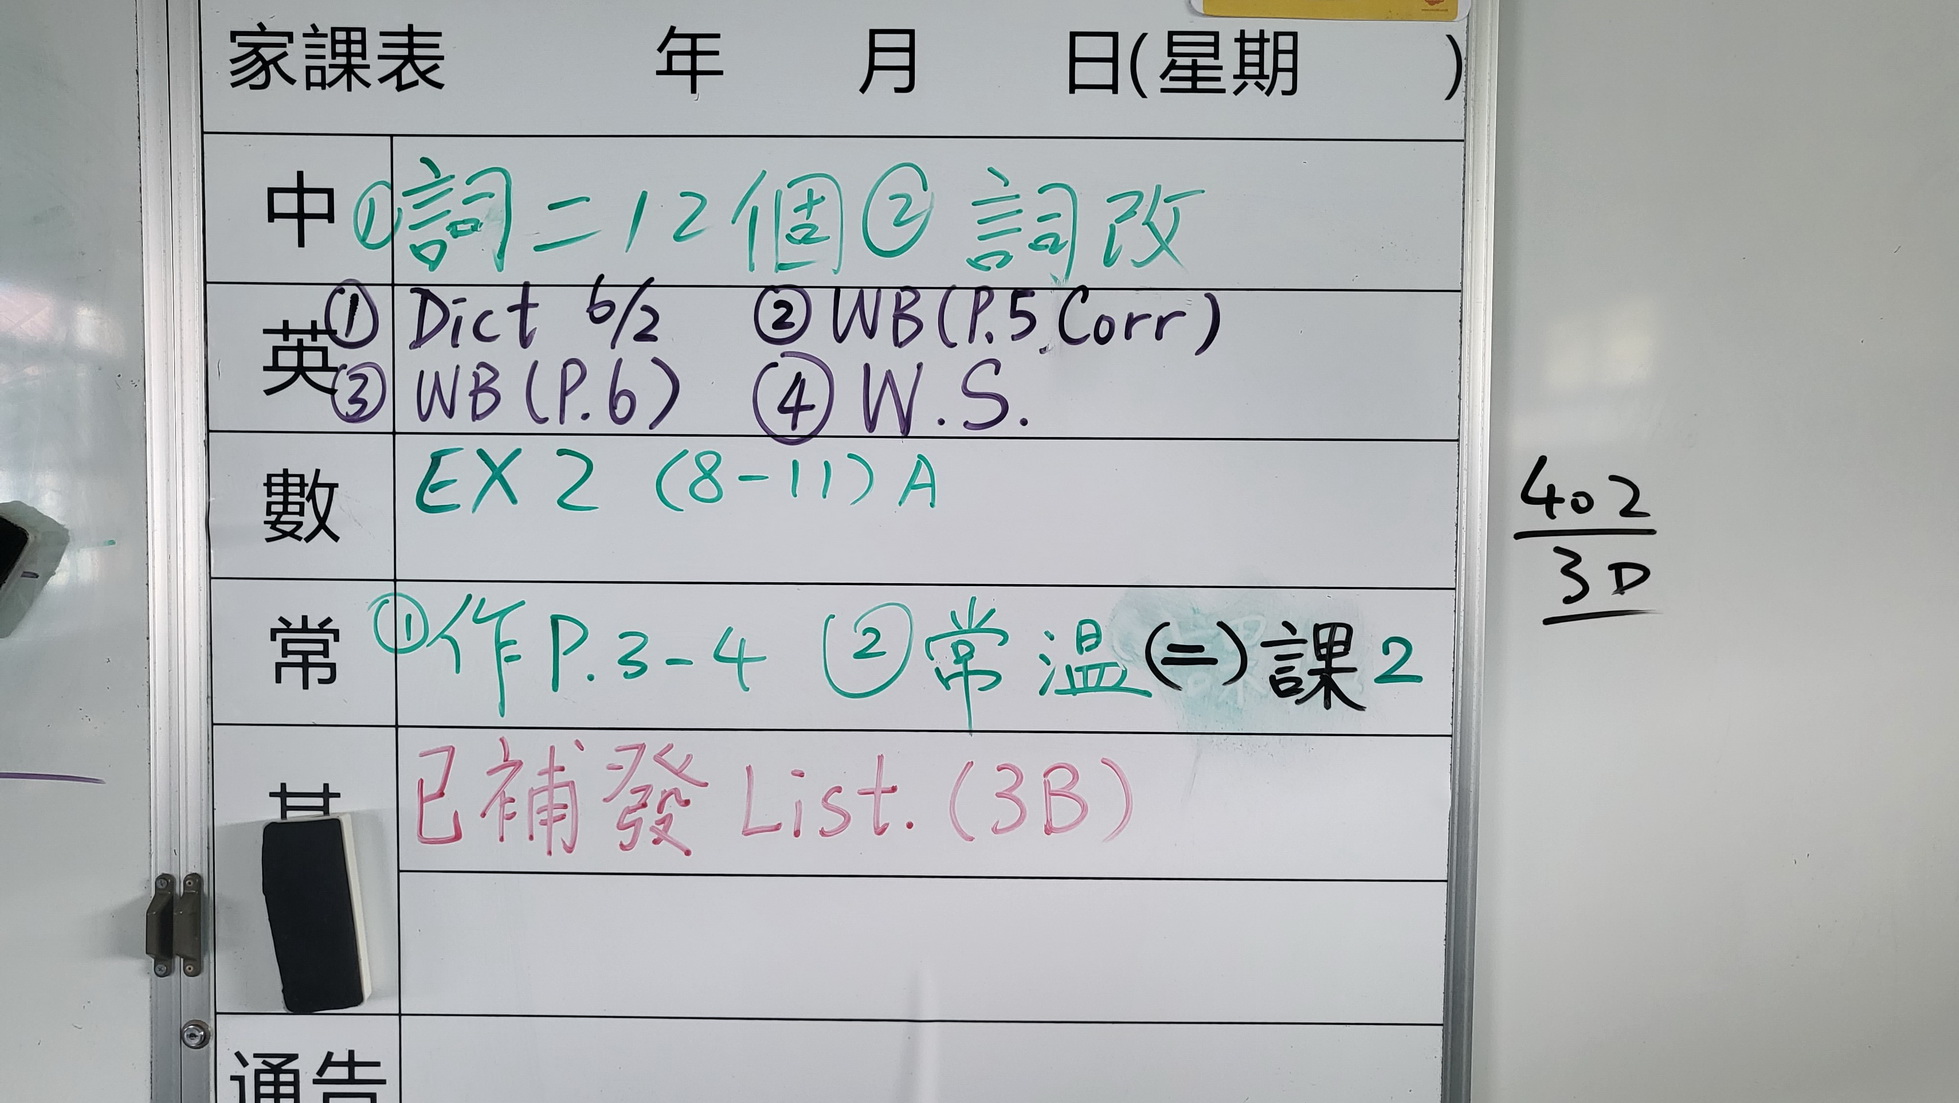 家課表 年 月 日(星期 )
中 ①詞二12個 ② 詞改
英 ① Dict 6/2 ② WB(P.5 Corr)
③ WB (P.6) ④ W.S.
數 EX 2 (8-11) A
常 ①作P.3-4 ②常温(二)課2
已補發 List. (3B)
通告
402
3D